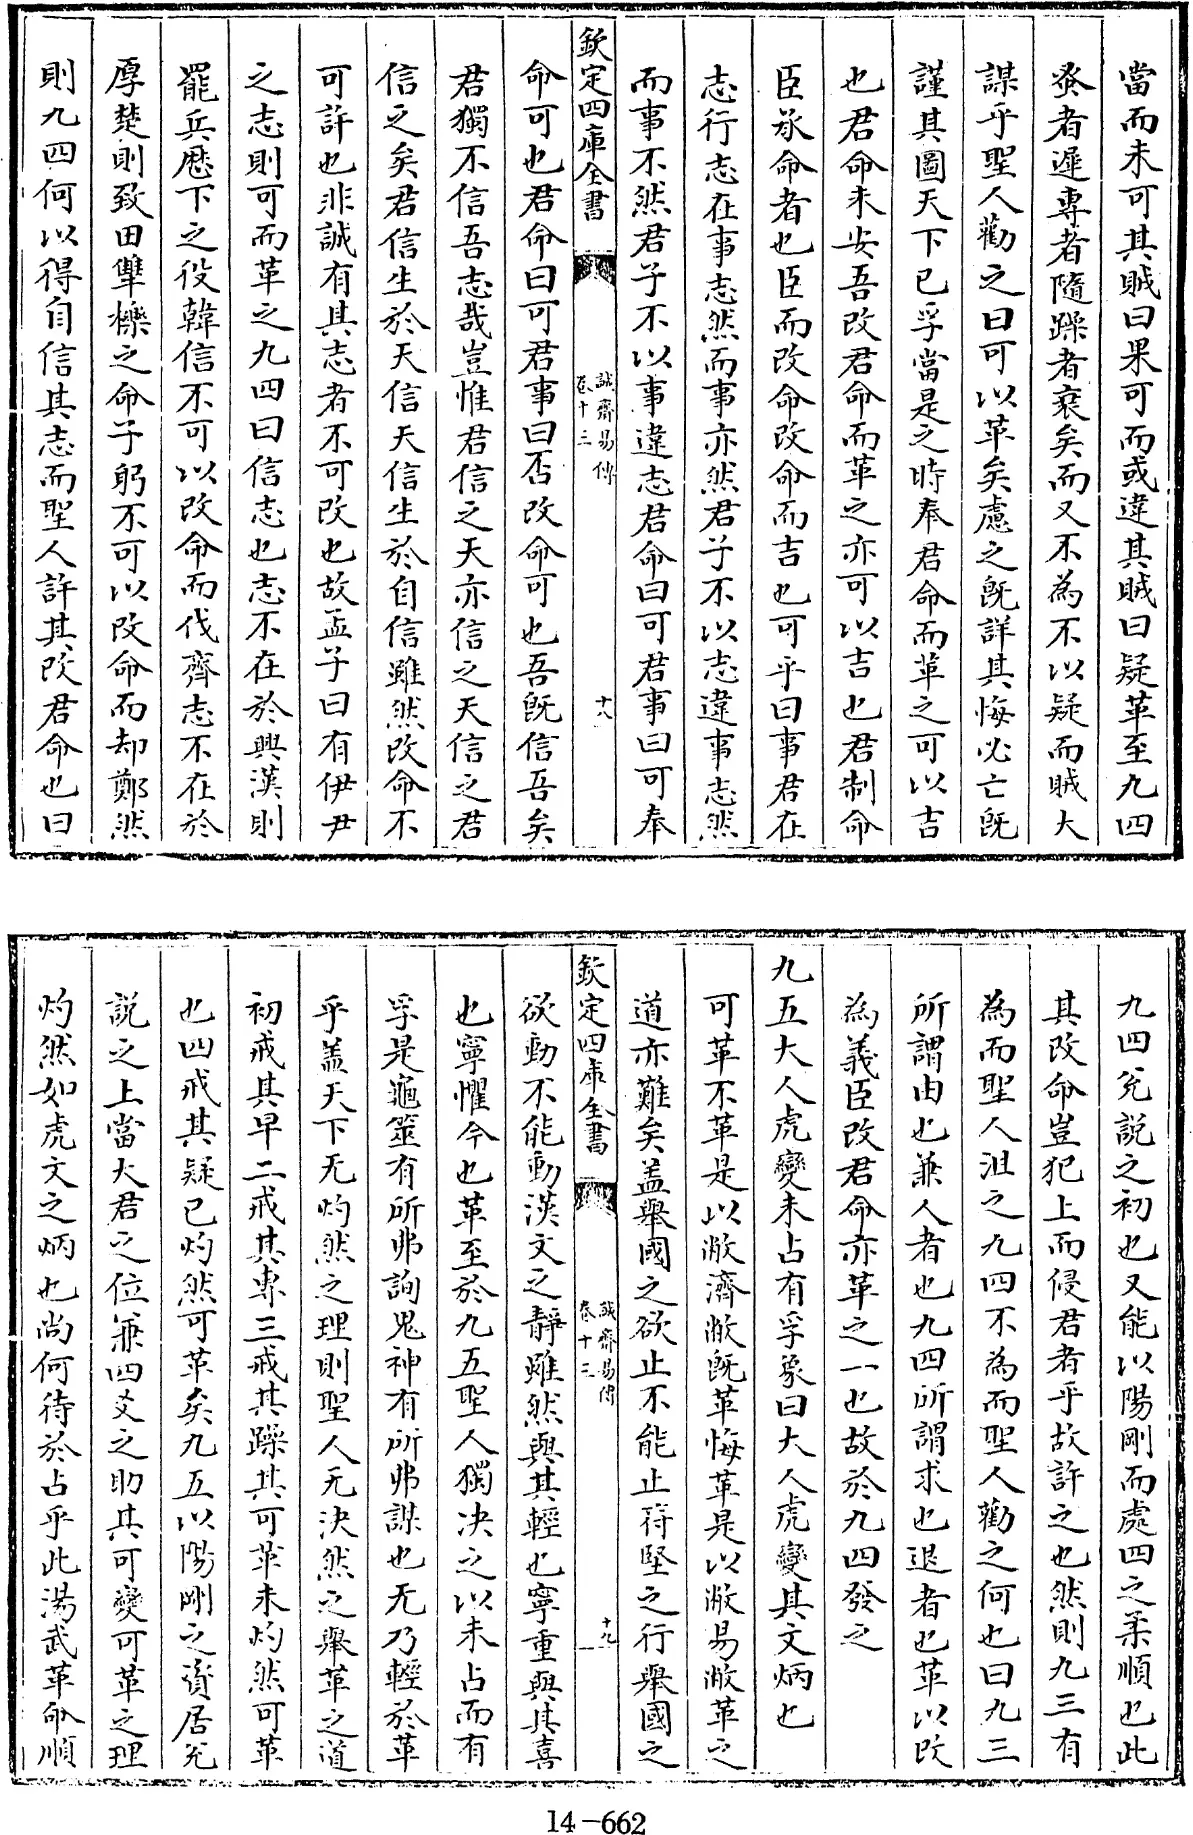 當而未可其賊曰果可而或違其賊曰疑革至九四
蚤者遲專者隨躁者裒矣而又不為不以疑而賊大
謀乎聖人勸之曰可以革矣慮之旣詳其悔必亡旣
謹其圖天下已孚當是之時奉君命而革之可以吉
也君命未安吾改君命而革之亦可以吉也君制命
臣承命者也臣而改命改命而吉也可乎曰事君在
志行志在事志然而事亦然君子不以志違事志然
而事不然君子不以事違志君命曰可君事曰可奉
欽定四庫全書 誠齋易傳 卷十三 十八
命可也君命曰可君事曰否改命可也吾旣信吾矣
君獨不信吾志哉豈惟君信之天亦信之天信之君
信之矣君信生於天信天信生於自信雖然改命不
可許也非誠有其志者不可改也故孟子曰有伊尹
之志則可而革之九四曰信志也志不在於興漢則
罷兵歷下之役韓信不可以改命而伐齊志不在於
厚楚則致田犨櫟之命子躬不可以改命而却鄭然
則九四何以得自信其志而聖人許其改君命也曰
九四兊說之初也又能以陽剛而處四之柔順也此
其改命豈犯上而侵君者乎故許之也然則九三有
為而聖人沮之九四不為而聖人勸之何也曰九三
所謂由也兼人者也九四所謂求也退者也革以改
為義臣改君命亦革之一也故於九四發之
九五大人虎變未占有孚象曰大人虎變其文炳也
可革不革是以敝濟敝旣革悔革是以敝易敝革之
道亦難矣盖舉國之欲止不能止苻堅之行舉國之
欽定四庫全書 誠齋易傳 卷十三 十九
欲動不能動漢文之靜雖然與其輕也寧重與其喜
也寧懼今也革至於九五聖人獨决之以未占而有
孚是龜筮有所弗詢鬼神有所弗謀也无乃輕於革
乎盖天下无灼然之理則聖人无決然之舉革之道
初戒其早二戒其專三戒其躁其可革未灼然可革
也四戒其疑已灼然可革矣九五以陽剛之資居兊
說之上當大君之位兼四爻之助其可變可革之理
灼然如虎文之炳也尚何待於占乎此湯武革命順
14-662